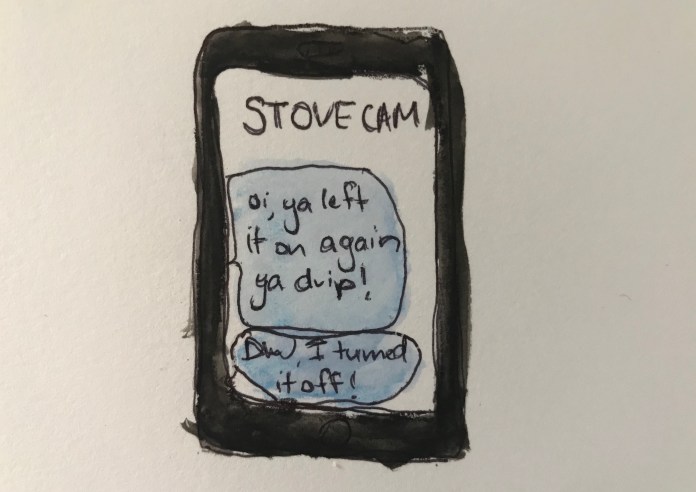 STOVECAM
oi, ya left
it on again
ya drip!
Dw, I turned
it off!